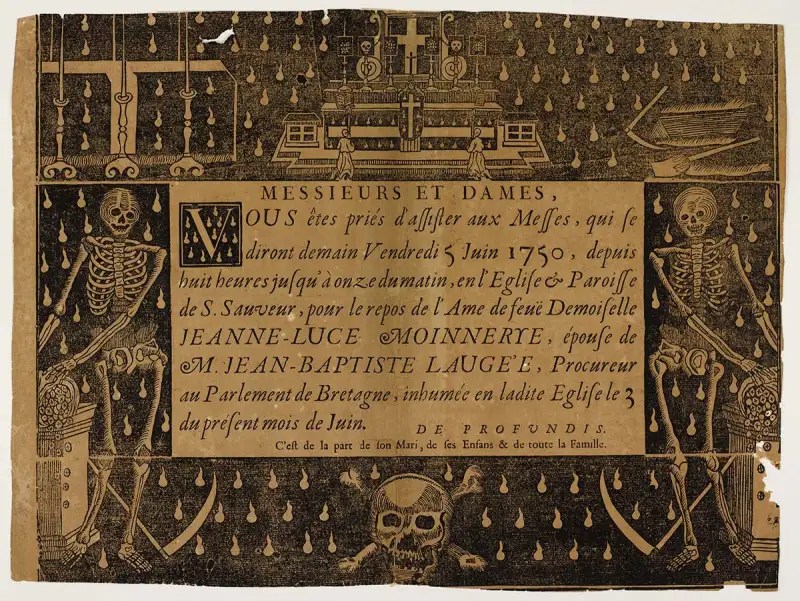 MESSIEURS ET DAMES,
VOUS êtes priés d'aſſiſter aux Meſſes, qui ſe
diront demain Vendredi 5 Juin 1750, depuis
huit heures juſqu'à onze du matin, en l'Egliſe & Paroiſſe
de S. Sauveur, pour le repos de l'Ame de feuë Demoiſelle
JEANNE-LUCE MOINNERYE, épouſe de
M. JEAN-BAPTISTE LAUGE'E, Procureur
au Parlement de Bretagne, inhumée en ladite Egliſe le 3
du préſent mois de Juin. DE PROFVNDIS.
C'eſt de la part de ſon Mari, de ſes Enfans & de toute la Famille.